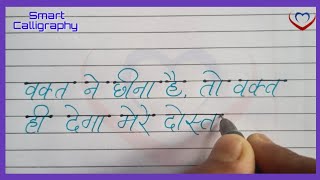 Smart
Calligraphy
वक्त ने छीना है, तो वक्त
ही देगा मेरे दोस्त